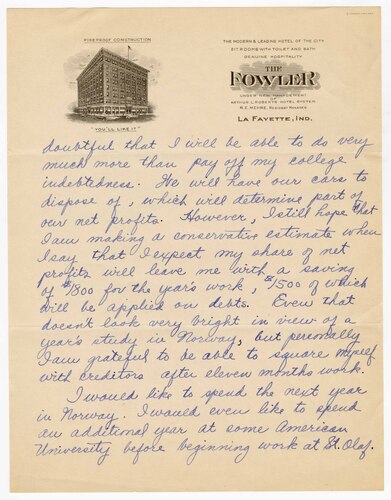 FIREPROOF CONSTRUCTION
"YOU'LL LIKE IT"
THE MODERN & LEADING HOTEL OF THE CITY
217 ROOMS WITH TOILET AND BATH
GENUINE HOSPITALITY
THE
FOWLER
UNDER NEW MANAGEMENT
ARTHUR L. ROBERTS HOTEL SYSTEM
R.E. MEHRE, RESIDENT MANAGER
LA FAYETTE, IND.
doubtful that I will be able to do very
much more than pay off my college
indebtedness. We will have our cars to
dispose of, which will determine part of
our net profits. However, I still hope that
I am making a conservative estimate when
I say that I expect my share of net
profits will leave me with a saving
of $1800 for the year's work, $1500 of which
will be applied on debts. Even that
doesn't look very bright in view of a
year's study in Norway, but personally
I am grateful to be able to square myself
with creditors after eleven months work.
I would like to spend the next year
in Norway. I would even like to spend
an additional year at some American
University before beginning work at St. Olaf.